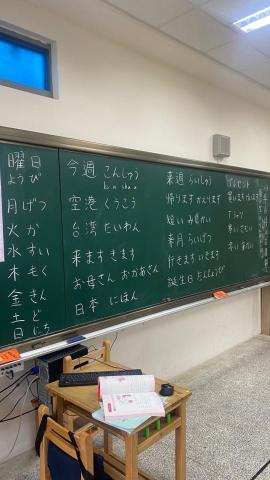 曜日
ようび
月 げつ
火 か
水 すい
木 もく
金 きん
土 ど
日 にち
今週 こんしゅう
空港 くうこう
台湾 たいわん
来ます きます
お母さん おかあさん
日本 にほん
来週 らいしゅう
帰ります かえります
短い みじかい
来月 らいげつ
行きます いきます
誕生日 たんじょうび
プレゼント
買います かいます
Tシャツ